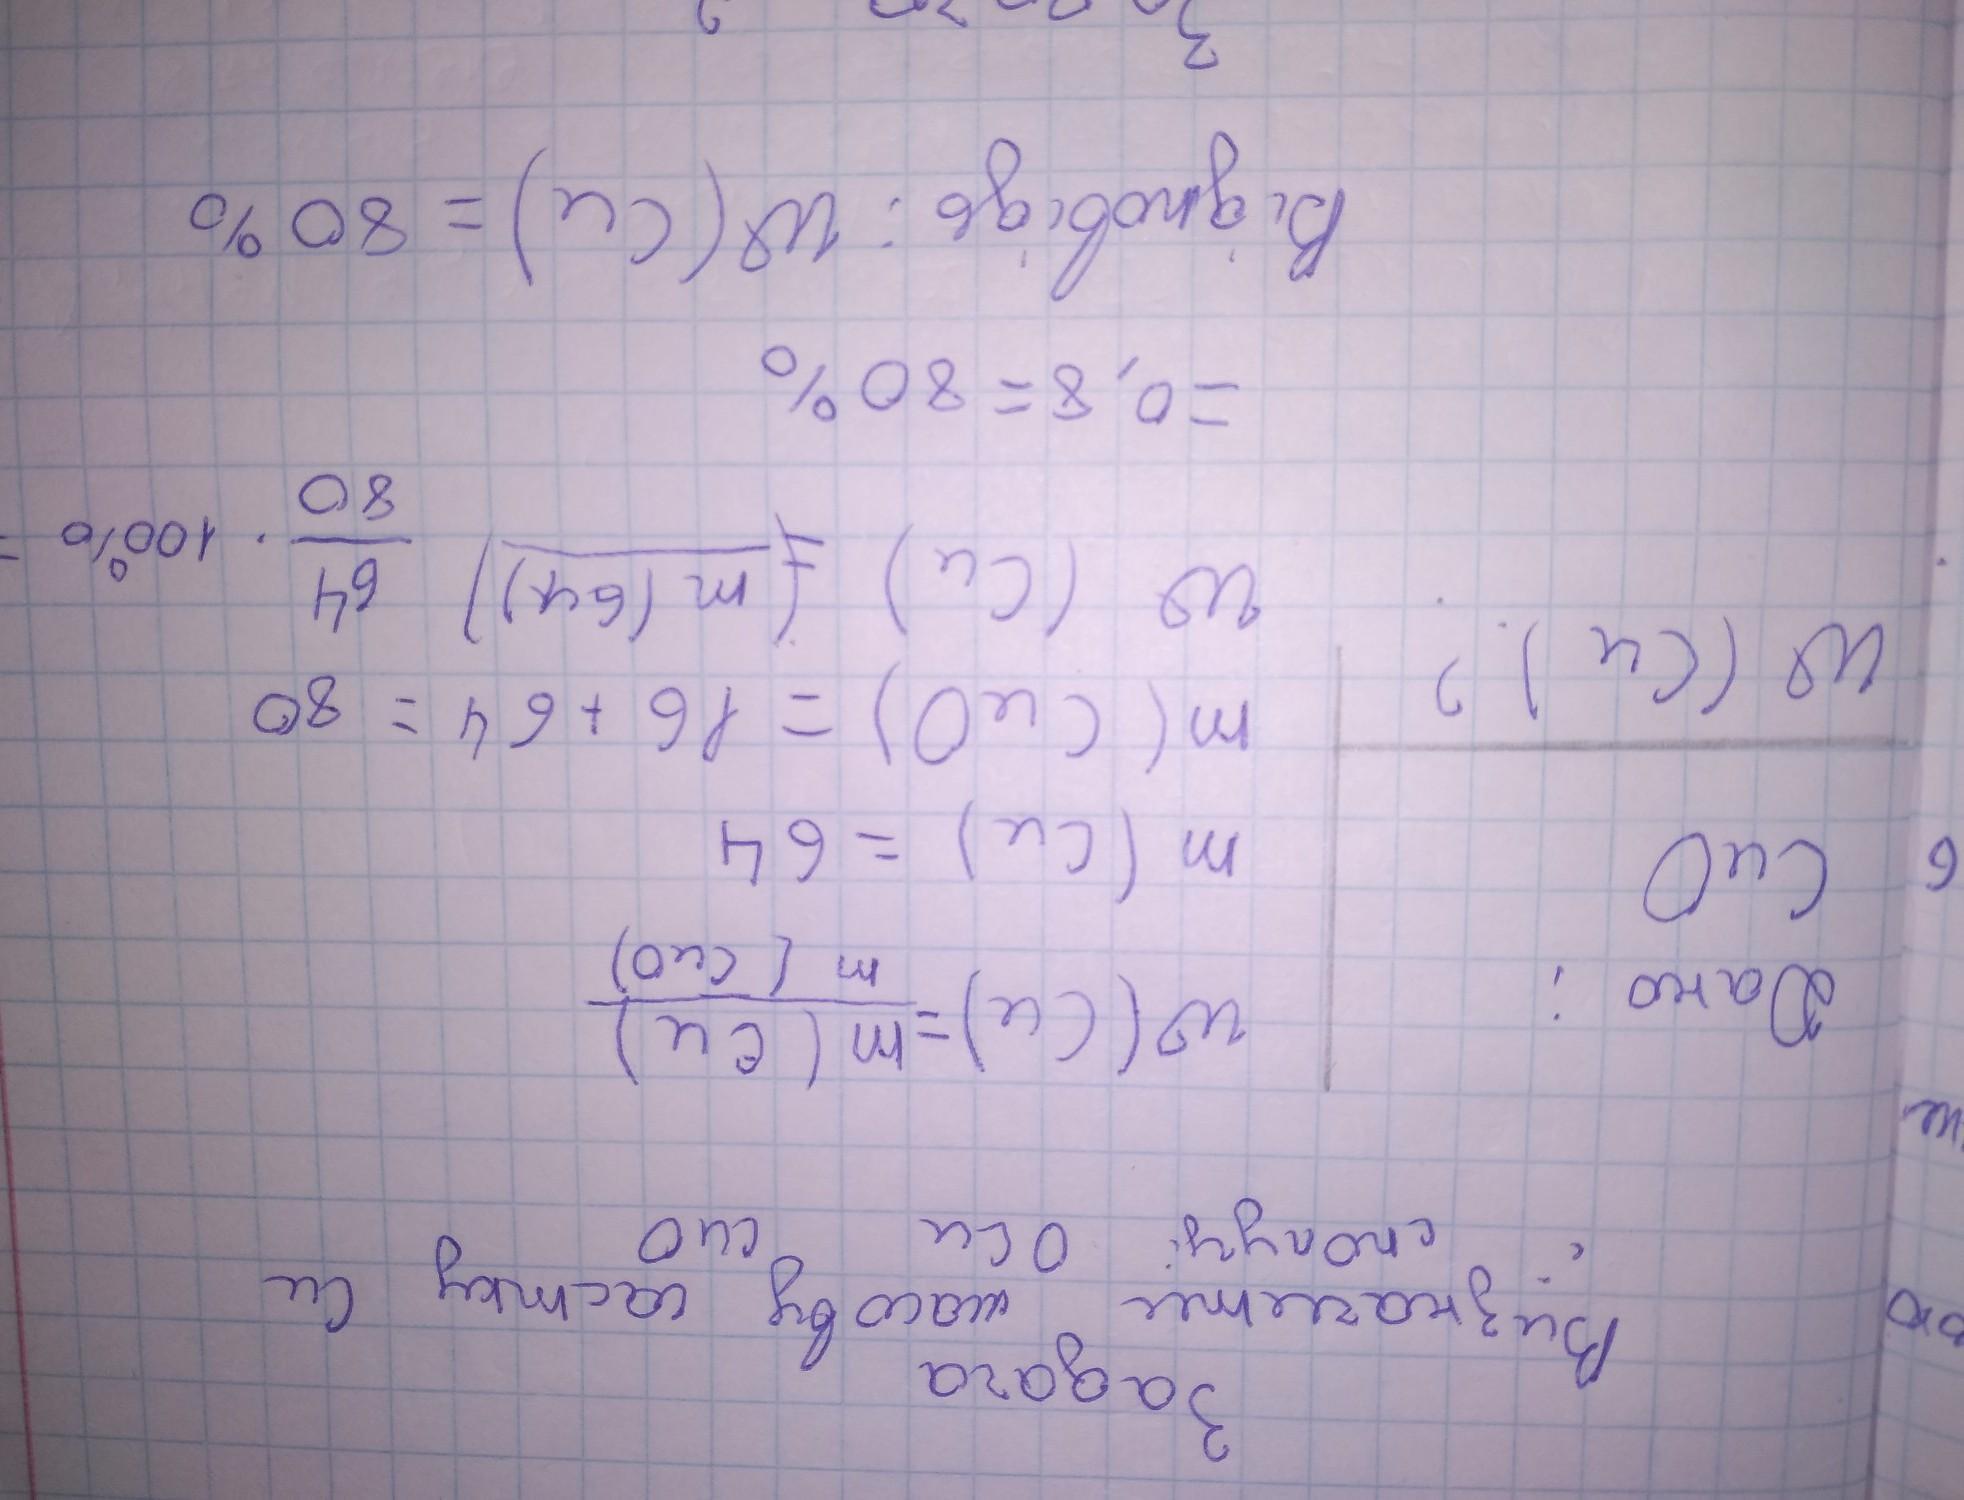 Задача
Визначити масову частку Cu
сполуці OCu CuO
Дано:
CuO
W (Cu) ?
W(Cu)=m(Cu)/m(CuO)
m (Cu) = 64
m(CuO) = 16 + 64 = 80
W (Cu) = (m(64)) 64/80 · 100% =
=0,8=80%
Відповідь: W(Cu)=80%